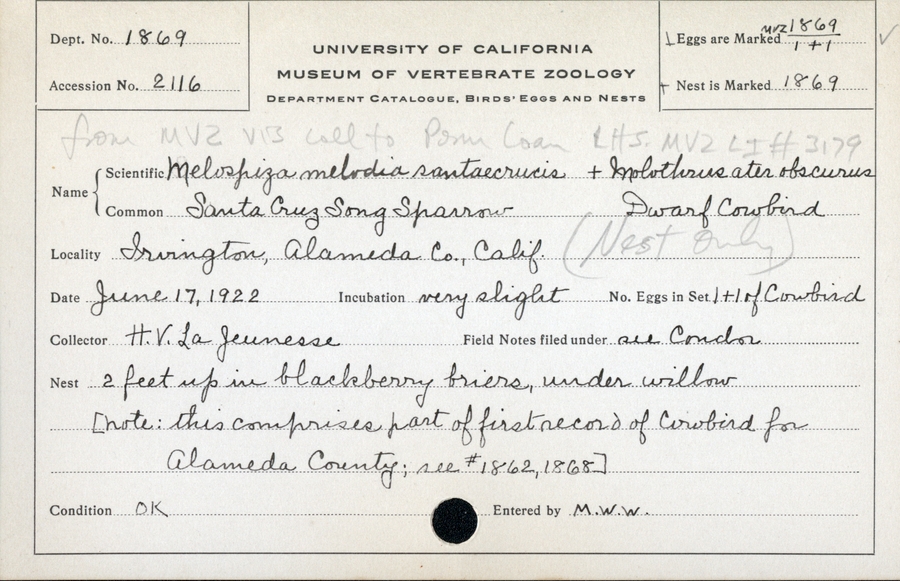 Dept. No. 1869
Accession No. 2116
UNIVERSITY OF CALIFORNIA
MUSEUM OF VERTEBRATE ZOOLOGY
DEPARTMENT CATALOGUE, BIRDS' EGGS AND NESTS
Eggs are Marked MVZ 1869 / 1+1
Nest is Marked 1869
from MVZ VIS coll to Perm Loan LHS. MVZ LI # 3179
Name { Scientific Melospiza melodia santaecrucis + Molothrus ater obscurus
Common Santa Cruz Song Sparrow Dwarf Cowbird
Locality Irvington, Alameda Co., Calif. (Nest only)
Date June 17, 1922 Incubation very slight No. Eggs in Set 1+1 of Cowbird
Collector H. V. La Jeunesse Field Notes filed under see Condor
Nest 2 feet up in blackberry briers, under willow
[note: this comprises part of first record of Cowbird for
Alameda County; see #1862, 1868]
Condition OK Entered by M.W.W.